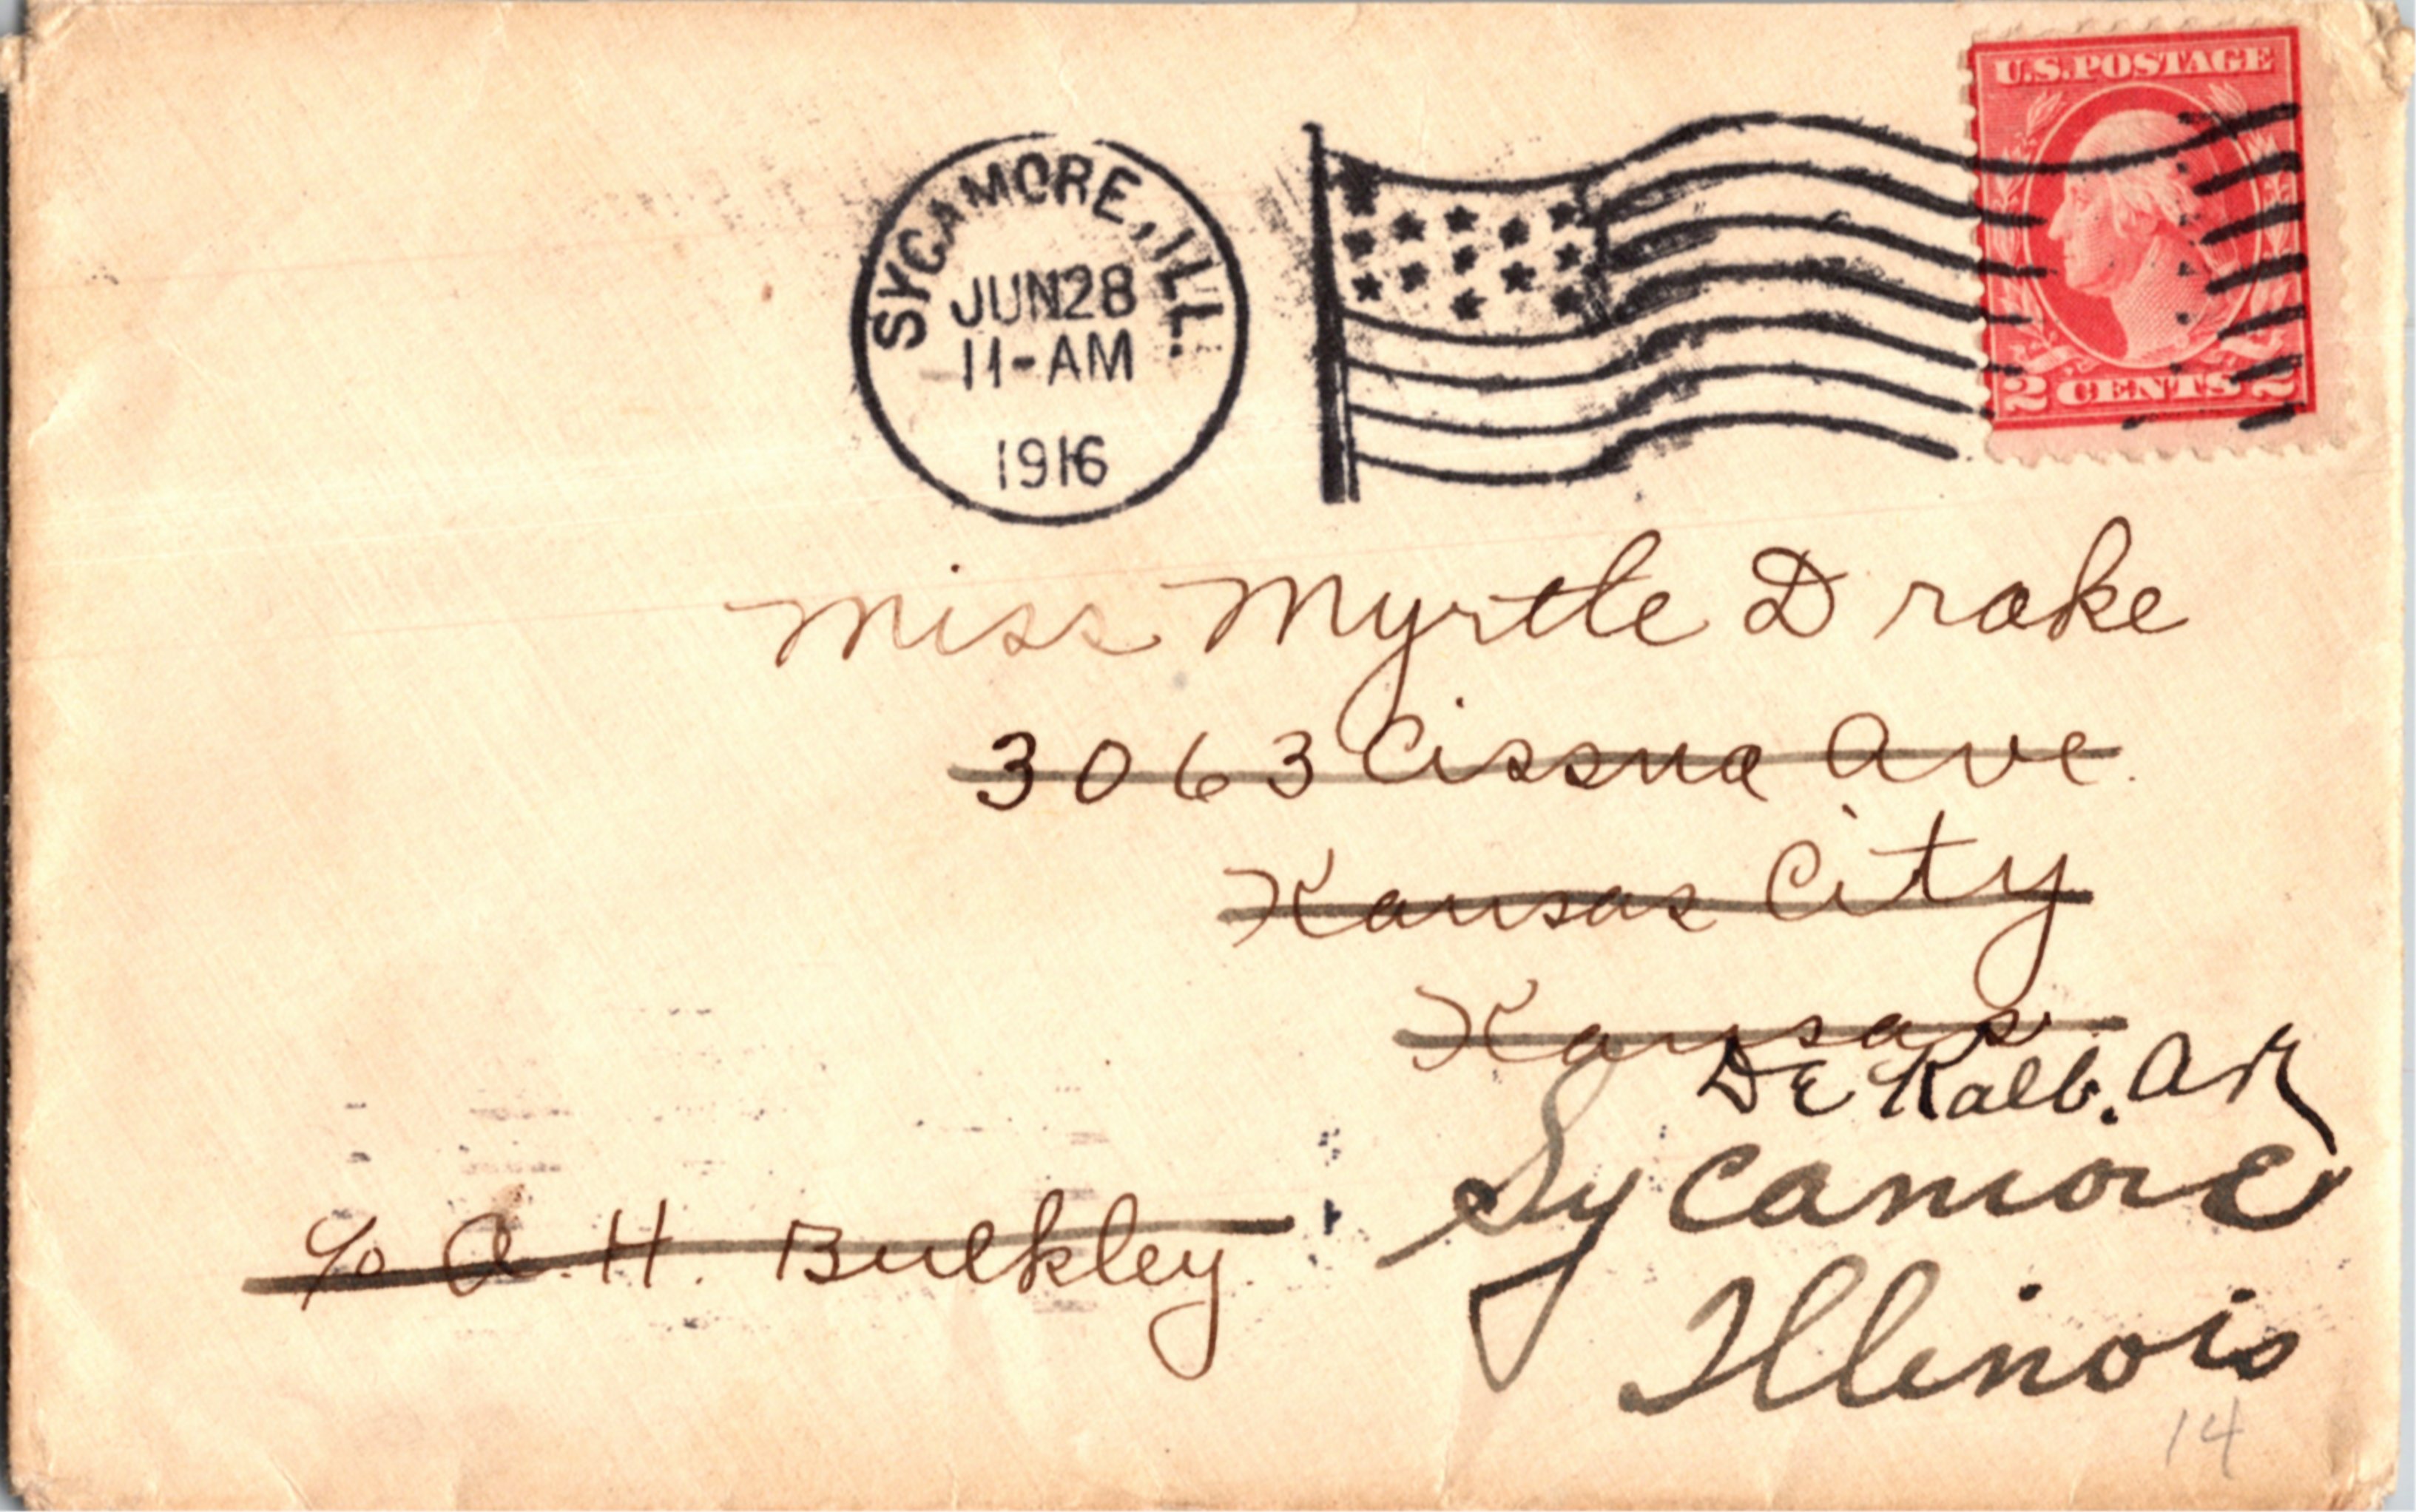 U.S. POSTAGE
SYCAMORE, ILL.
JUN 28
11-AM
1916
2 CENTS 2
Miss Myrtle Drake
3063 Cissna Ave.
Kansas City
Kansas
De Kalb. Av
Sycamore
c/o A. H. Bulkley
Illinois
14